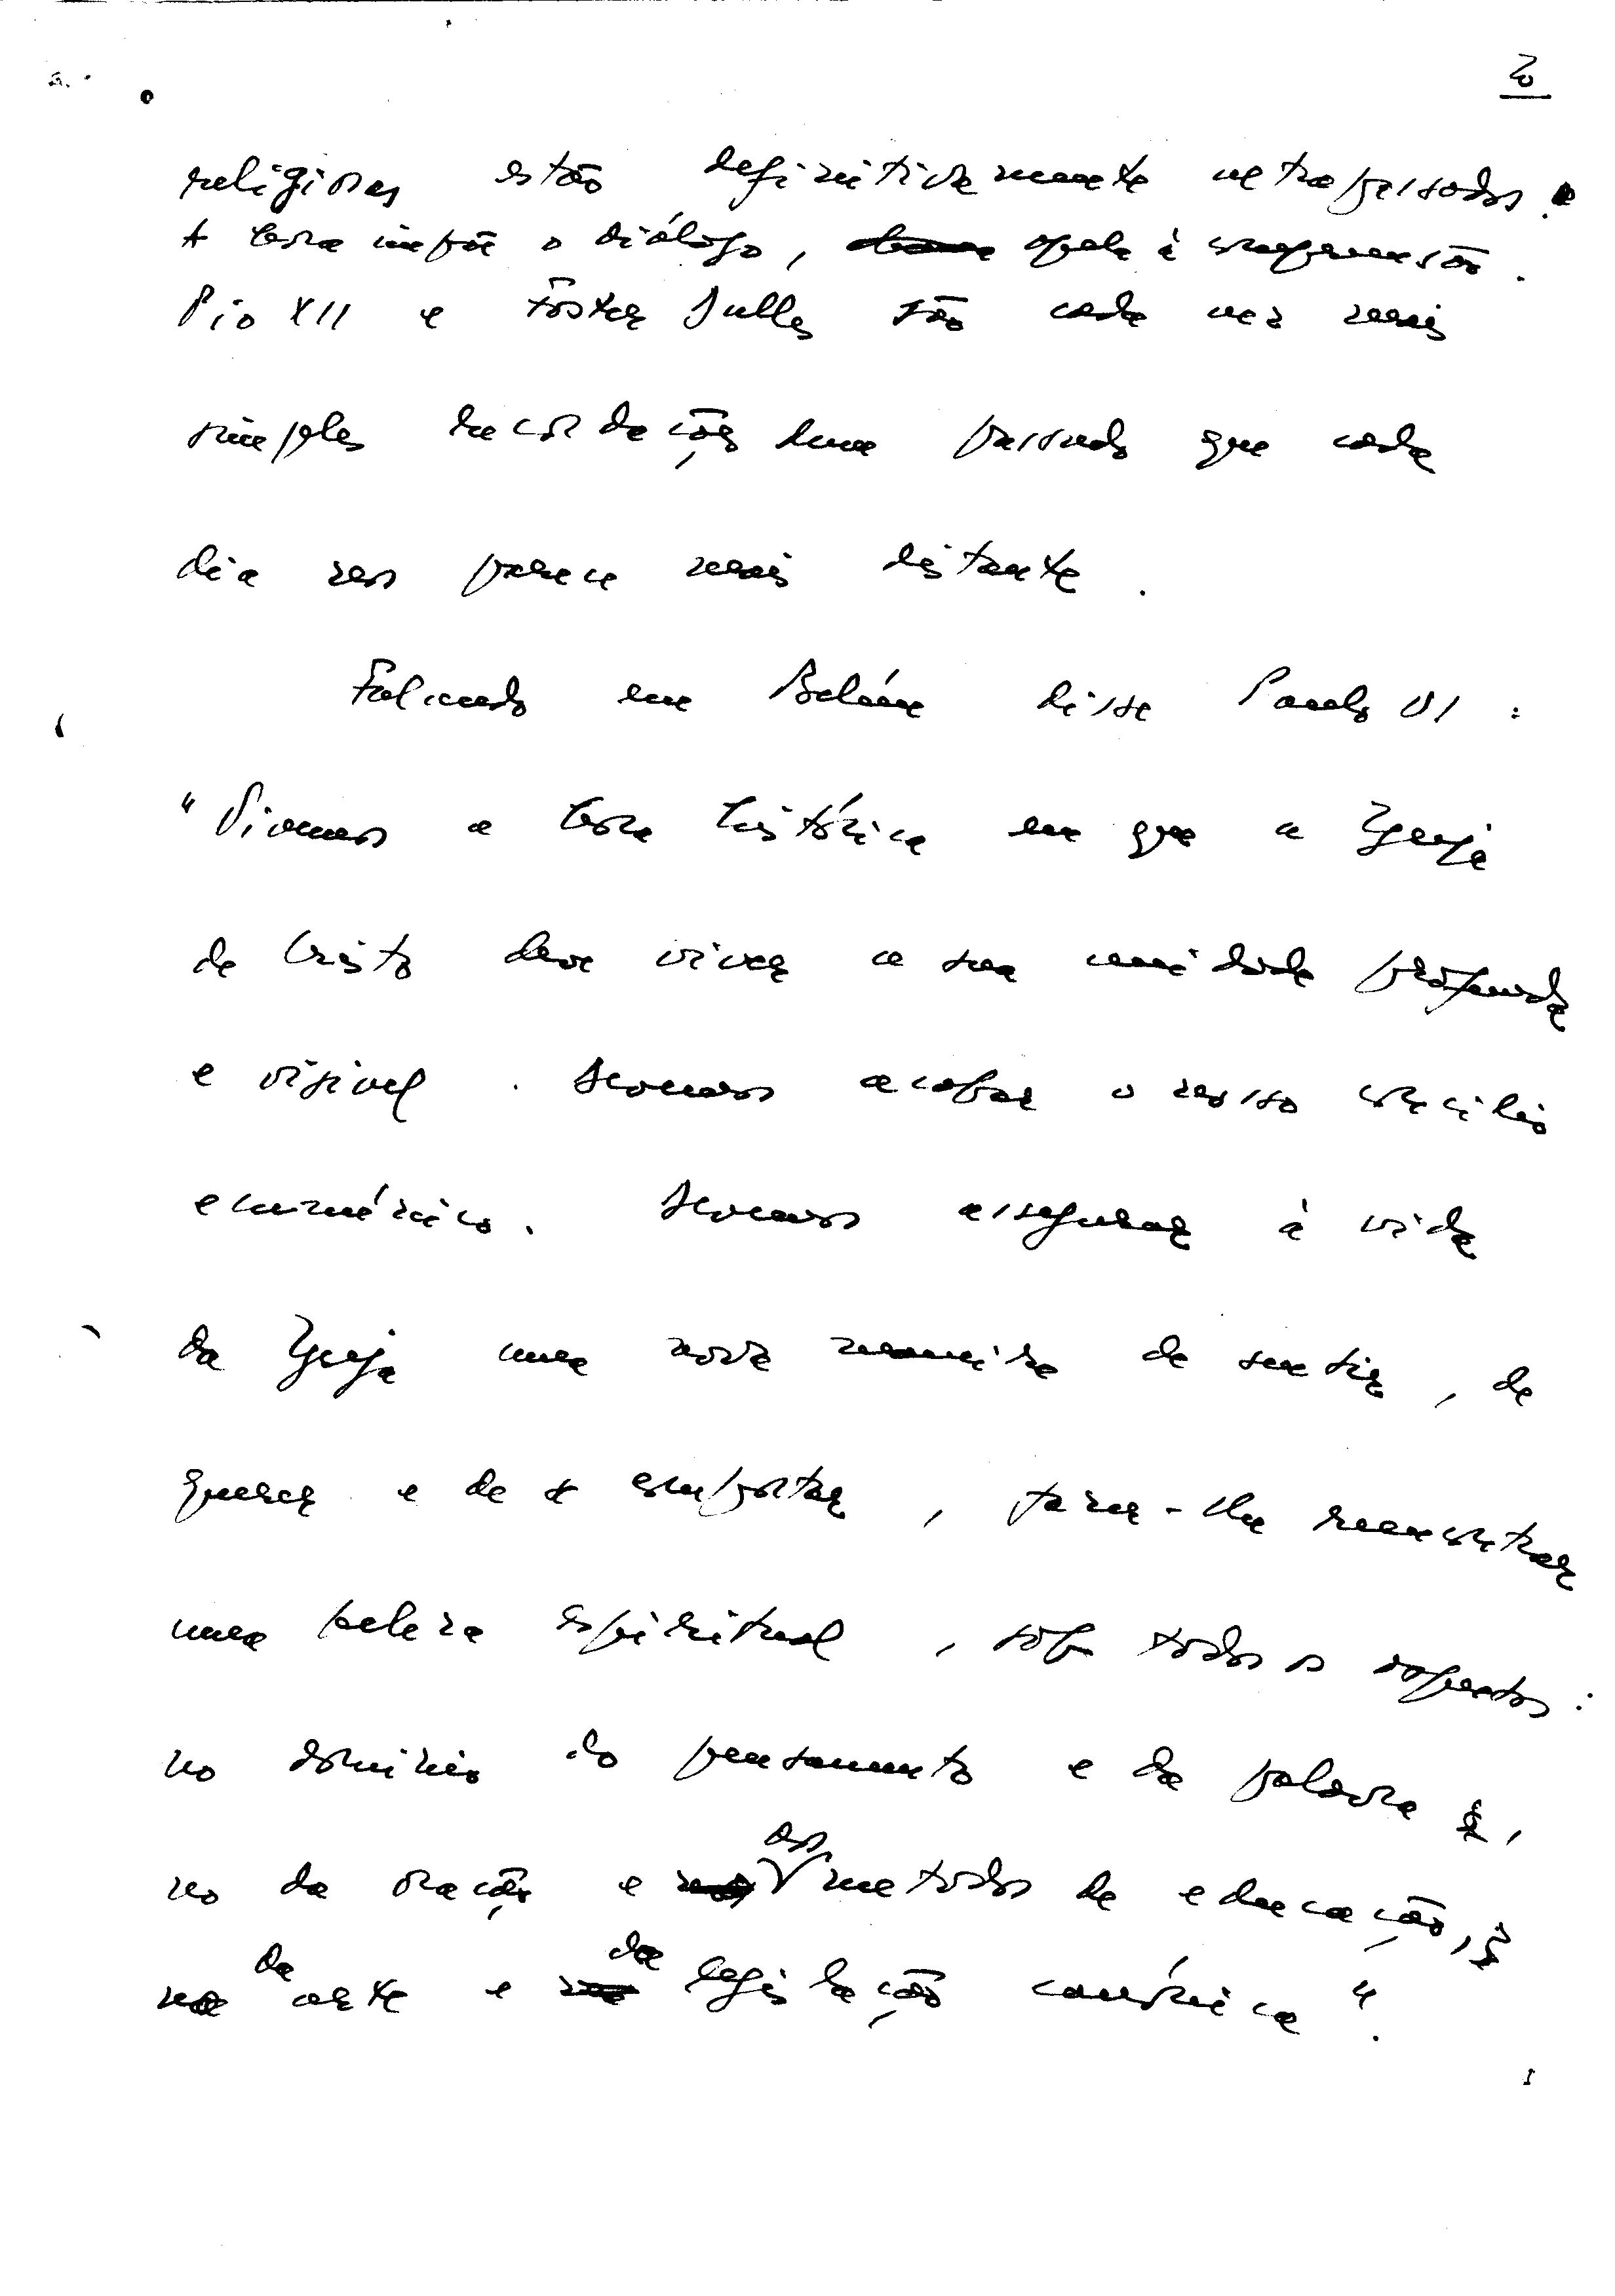 20
religiosas estão definitivamente ultrapassados.
A hora impõe o diálogo, apela à compreensão.
Pio XII e Foster Dulles são cada vez mais
simples recordações dum passado que cada
dia nos parece mais distante.
Falando em Belém disse Paulo VI:
"Vivemos a hora histórica em que a Igreja
de Cristo deve viver a sua unidade profunda
e visível. Devemos acabar o nosso concílio
ecuménico. Devemos assegurar à vida
da Igreja uma nova maneira de sentir, de
querer e de se comportar, fazer-lhe reencontrar
uma beleza espiritual, sob todos os aspectos:
no domínio do pensamento e da palavra,
no da oração e dos metodos de educação,
da arte e da legislação canónica".